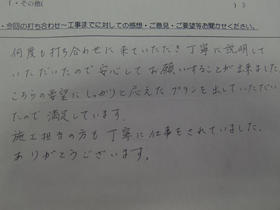 1・その他( ) 〕
・今回の打ち合わせ〜工事までに対しての感想・ご意見・ご要望等お聞かせください。
何度も打ち合わせに来ていただき丁寧に説明して
いただいたので安心してお願いすることが出来ました
こちらの要望にしっかりと応えたプランを出していただい
たので満足しています。
施工担当の方も丁寧に仕事をされていました。
ありがとうございます。